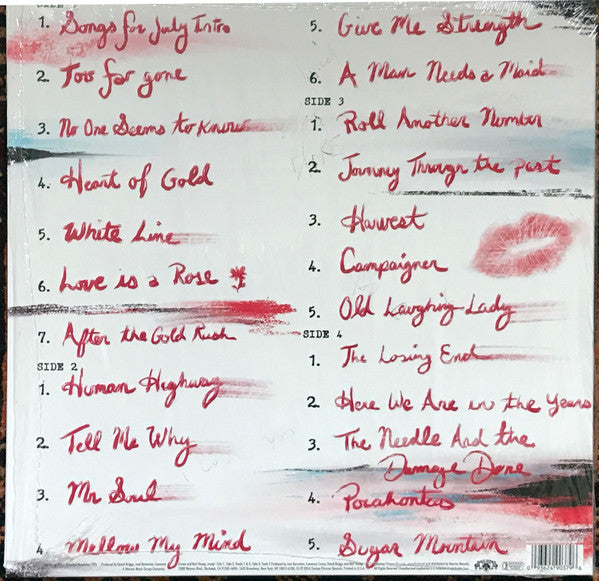 SIDE
1. Songs for July Intro
2. Too far gone
3. No One Seems to Know
4. Heart of Gold
5. White Line
6. Love is a Rose
7. After the Gold Rush
SIDE 2
1. Human Highway
2. Tell Me Why
3. Mr Soul
4 Mellow My Mind
5. Give Me Strength
6. A Man Needs a Maid
SIDE 3
1. Roll Another Number
2. Journey Through the past
3. Harvest
4. Campaigner
5. Old Laughing Lady
SIDE 4
1. The Losing End
2. Here We Are in the Years
3. The Needle And the
Damage Done
4. Pocahontas
5. Sugar Mountain